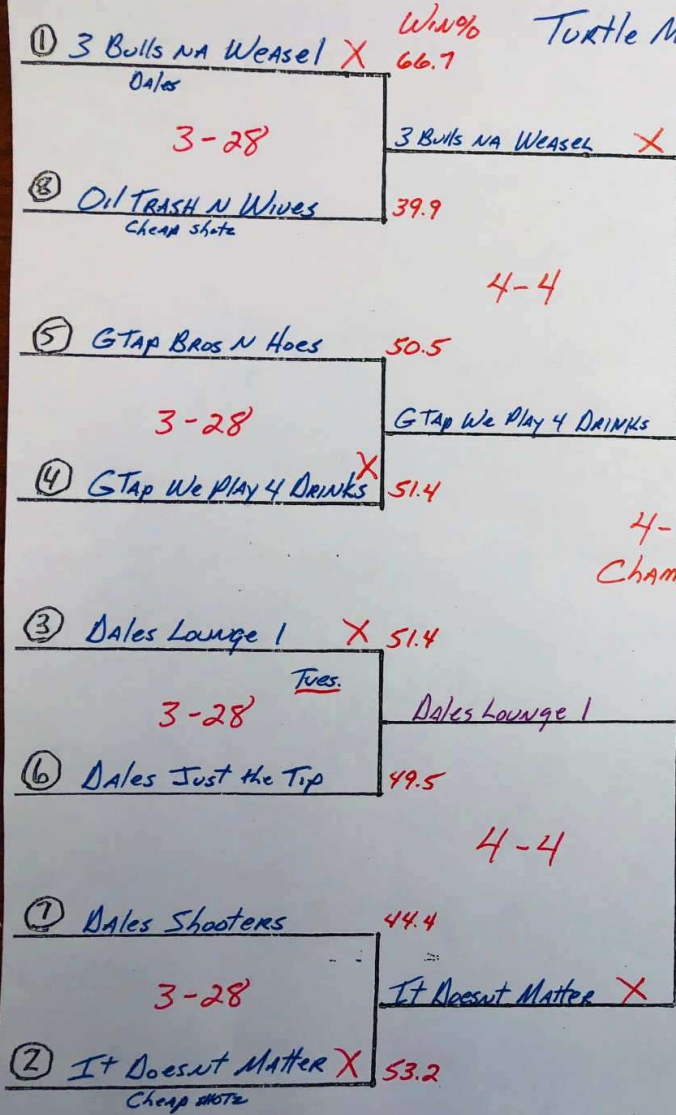 Win%
Turtle M
① 3 Bulls NA Weasel X 66.7
Dales
3-28
3 Bulls NA Weasel X
⑧ Oil Trash N Wives 39.9
Cheap Shotz
4-4
⑤ GTap Bros N Hoes 50.5
3-28
GTap We Play 4 Drinks
④ GTap We Play 4 Drinks X 51.4
4-
Cham
③ Dales Lounge 1 X 51.4
Tues.
3-28
Dales Lounge 1
⑥ Dales Just the Tip 49.5
4-4
⑦ Dales Shooters 44.4
3-28
It Doesnt Matter X
② It Doesnt Matter X 53.2
Cheap Shotz